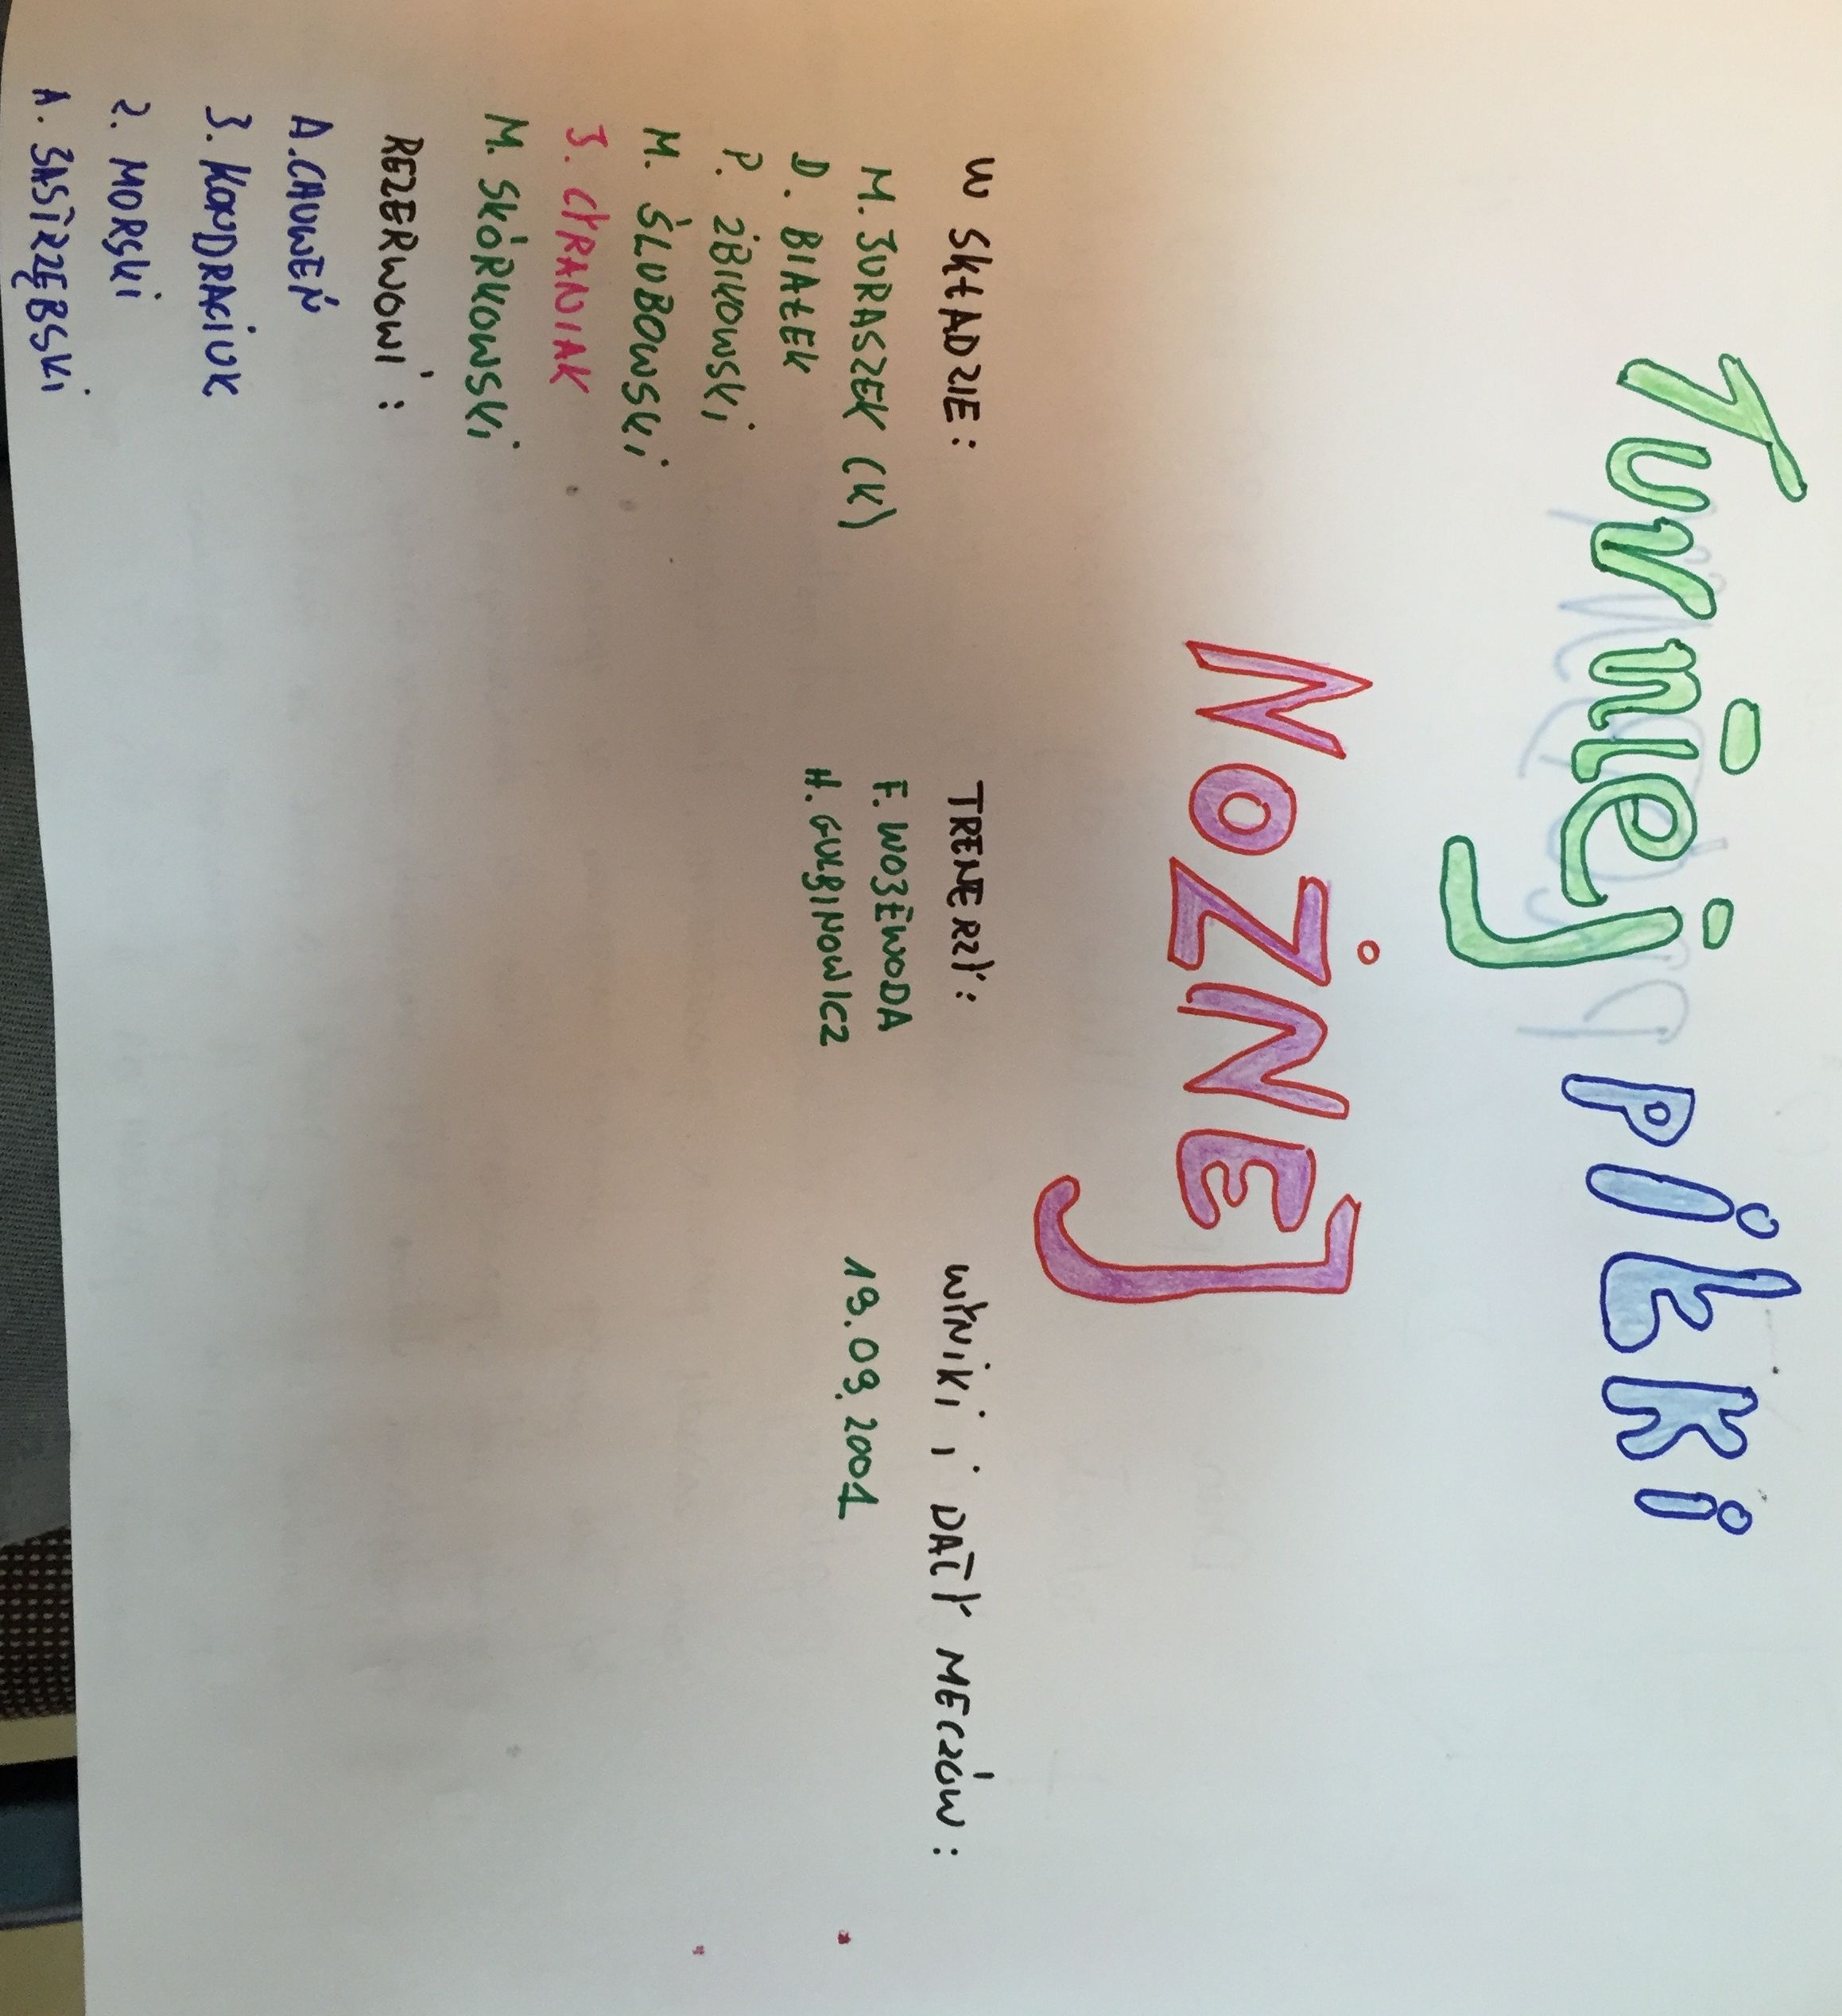 Turniej PIŁKI
NOŻNEJ
W SKŁADZIE:
M. JURASZEK (K)
D. BIAŁEK
P. ŻBIKOWSKI
M. ŚLUBOWSKI
J. CYRANIAK
M. SKÓRKOWSKI
REZERWOWI:
A. CAUWEŃ
J. KONDRACIUK
2. MORSKI
1. JASTRZĘBSKI
TRENERZY:
F. WOJEWODA
H. GULBINOWICZ
WYNIKI I DATY MECZÓW:
19.09.2001